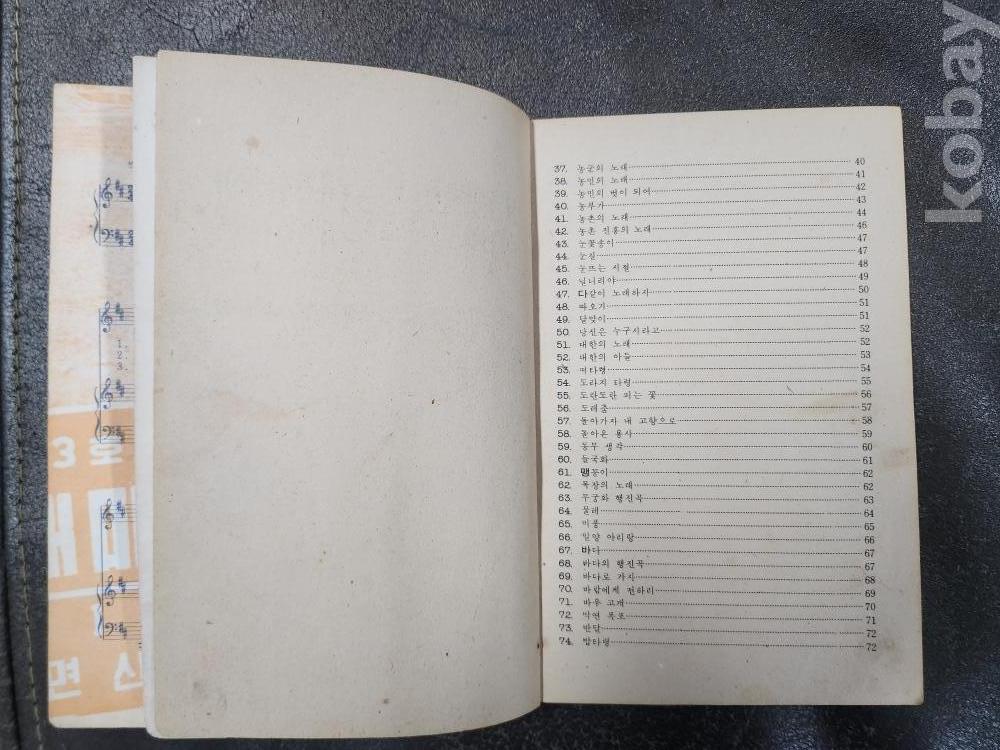 kobay
1.
2.
3.
3호
면
37. 농군의 노래 40
38. 농민의 노래 41
39. 농민의 벗이 되어 42
40. 농부가 43
41. 농촌의 노래 44
42. 농촌 진흥의 노래 46
43. 눈꽃송이 47
44. 눈길 47
45. 눈뜨는 시절 48
46. 닐니리야 49
47. 다같이 노래하자 50
48. 따오기 51
49. 달맞이 51
50. 당신은 누구시라고 52
51. 대한의 노래 52
52. 대한의 아들 53
53. 떡타령 54
54. 도라지 타령 55
55. 도란도란 피는 꽃 56
56. 도레춤 57
57. 돌아가자 내 고향으로 58
58. 돌아온 용사 59
59. 동무 생각 60
60. 들국화 61
61. 맹꽁이 62
62. 목장의 노래 62
63. 무궁화 행진곡 63
64. 물레 64
65. 미풍 65
66. 밀양 아리랑 66
67. 바다 67
68. 바다의 행진곡 67
69. 바다로 가자 68
70. 바람에게 전하리 69
71. 바우 고개 70
72. 박연 폭포 71
73. 반달 72
74. 밤타령 72